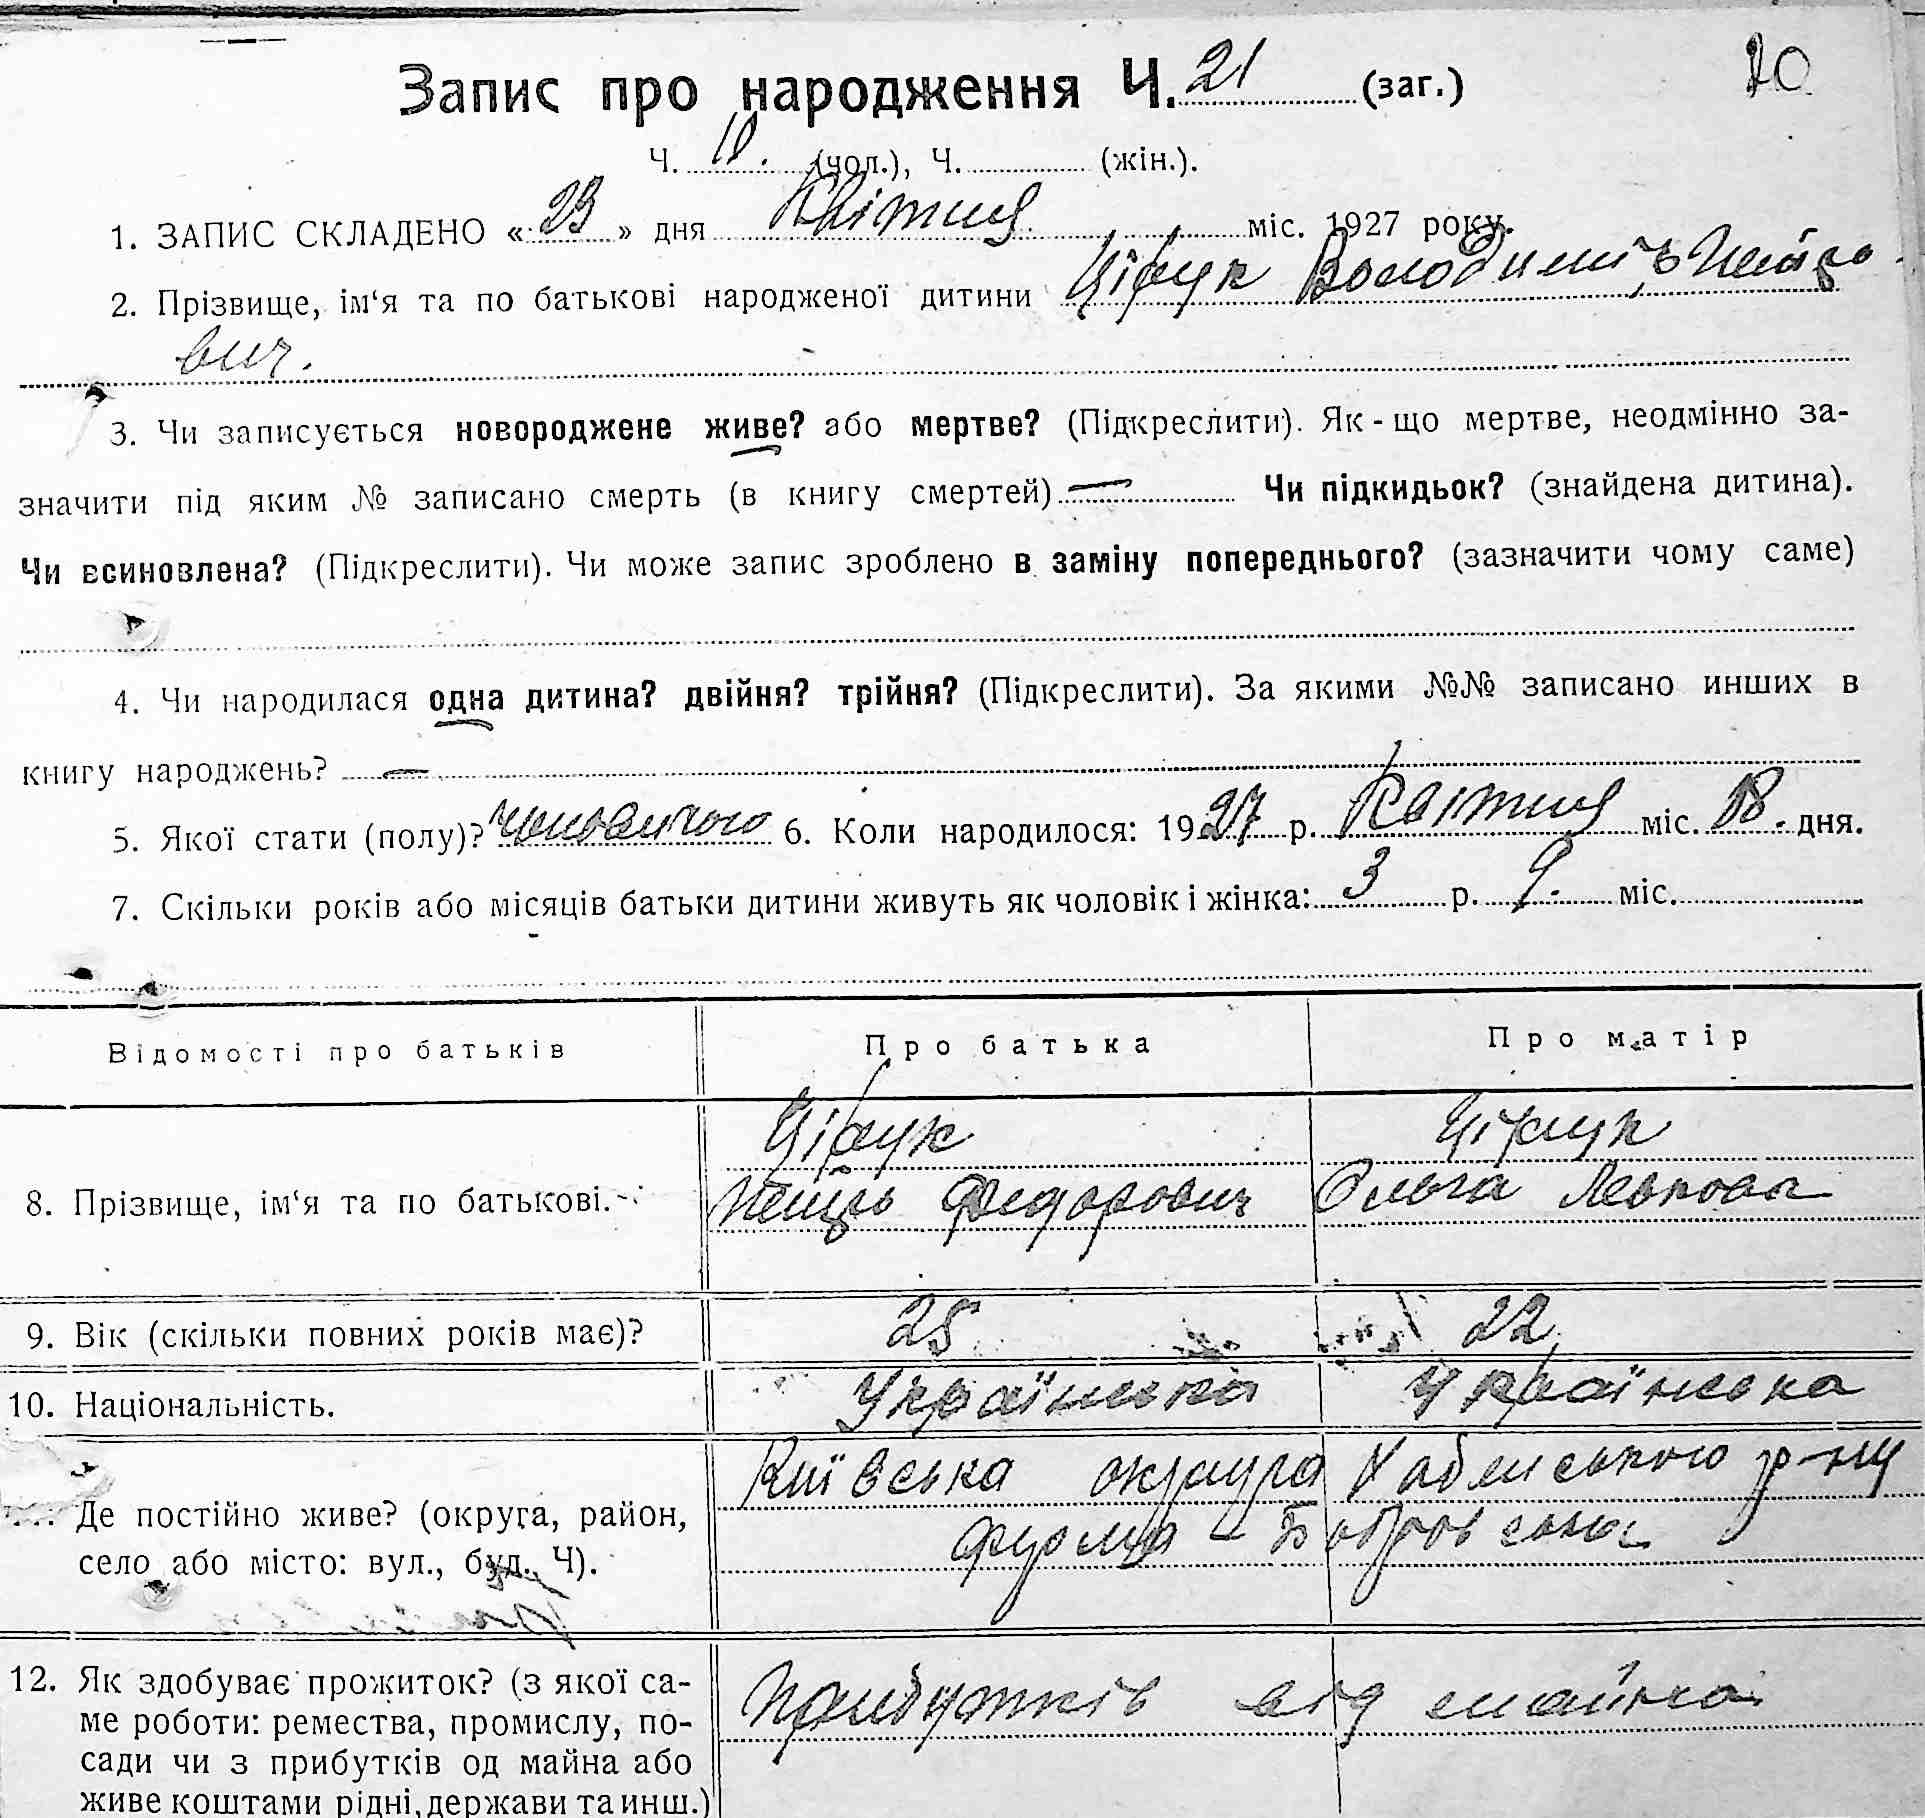 Запис про народження Ч. 21 (заг.)
20
Ч. 10. (чол.), Ч. (жін.).
1. ЗАПИС СКЛАДЕНО «23» дня Квітня міс. 1927 року.
2. Прізвище, ім‘я та по батькові народженої дитини Володимір Петро-
вич.
3. Чи записується новороджене живе? або мертве? (Підкреслити). Як-що мертве, неодмінно за-
значити під яким № записано смерть (в книгу смертей) — Чи підкидьок? (знайдена дитина).
Чи всиновлена? (Підкреслити). Чи може запис зроблено в заміну попереднього? (зазначити чому саме)
4. Чи народилася одна дитина? двійня? трійня? (Підкреслити). За якими №№ записано инших в
книгу народжень? —
5. Якої стати (полу)? чоловічого 6. Коли народилося: 1927 р. Квітня міс. 18. дня.
7. Скільки років або місяців батьки дитини живуть як чоловік і жінка: 3 р. 9. міс.
Відомості про батьків Про батька Про матір
8. Прізвище, ім‘я та по батькові. Петро Федорович Ольга Левкова
9. Вік (скільки повних років має)? 25 22
10. Національність. Українська Українська
Київська округа Хабенського р-ну
Де постійно живе? (округа, район, село або місто: вул., буд. Ч).
12. Як здобуває прожиток? (з якої са- Прибутків від майна
ме роботи: ремества, промислу, по-
сади чи з прибутків од майна або
живе коштами рідні, держави та инш.)